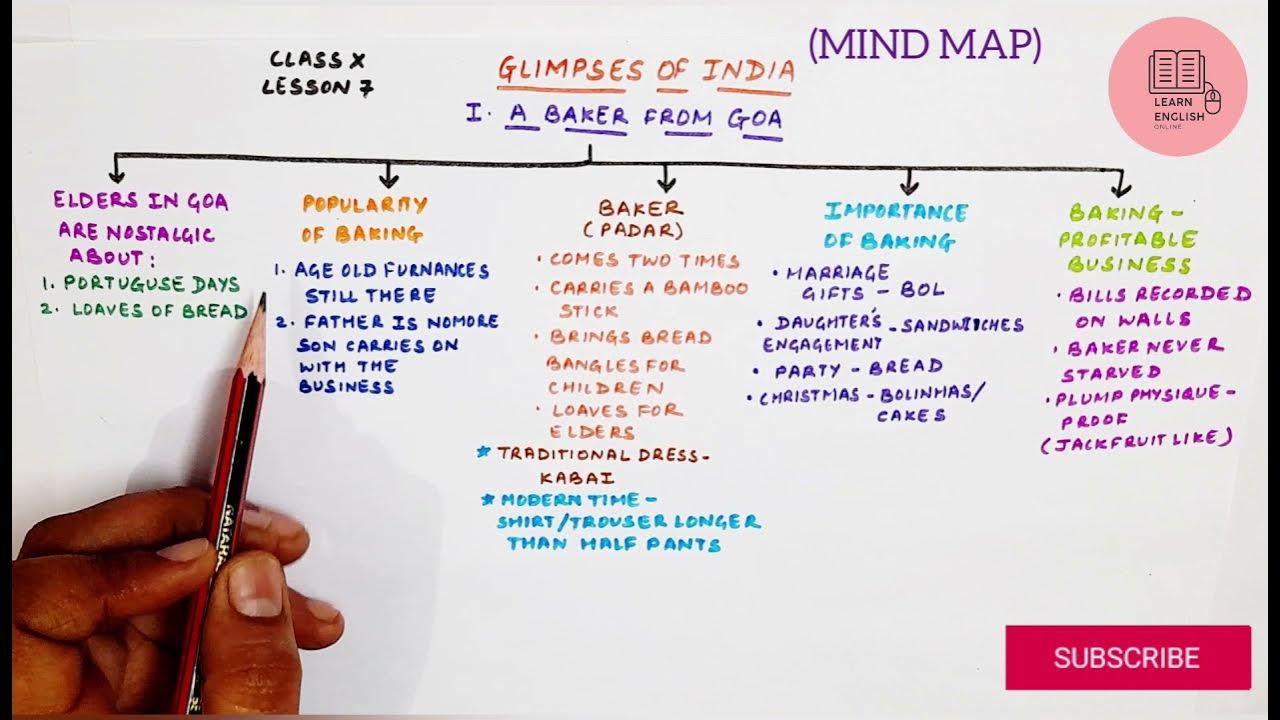 (MIND MAP)
CLASS X
LESSON 7
GLIMPSES OF INDIA
I. A BAKER FROM GOA
LEARN
ENGLISH
ONLINE
ELDERS IN GOA
ARE NOSTALGIC
ABOUT:
1. PORTUGUSE DAYS
2. LOAVES OF BREAD
POPULARITY
OF BAKING
1. AGE OLD FURNANCES
STILL THERE
2. FATHER IS NOMORE
SON CARRIES ON
WITH THE
BUSINESS
BAKER
(PADAR)
• COMES TWO TIMES
• CARRIES A BAMBOO
STICK
• BRINGS BREAD
BANGLES FOR
CHILDREN
• LOAVES FOR
ELDERS
* TRADITIONAL DRESS-
KABAI
* MODERN TIME-
SHIRT/TROUSER LONGER
THAN HALF PANTS
IMPORTANCE
OF BAKING
• MARRIAGE
GIFTS - BOL
• DAUGHTER'S - SANDWITCHES
ENGAGEMENT
• PARTY - BREAD
• CHRISTMAS - BOLINHAS/
CAKES
BAKING-
PROFITABLE
BUSINESS
• BILLS RECORDED
ON WALLS
• BAKER NEVER
STARVED
• PLUMP PHYSIQUE-
PROOF
(JACKFRUIT LIKE)
SUBSCRIBE